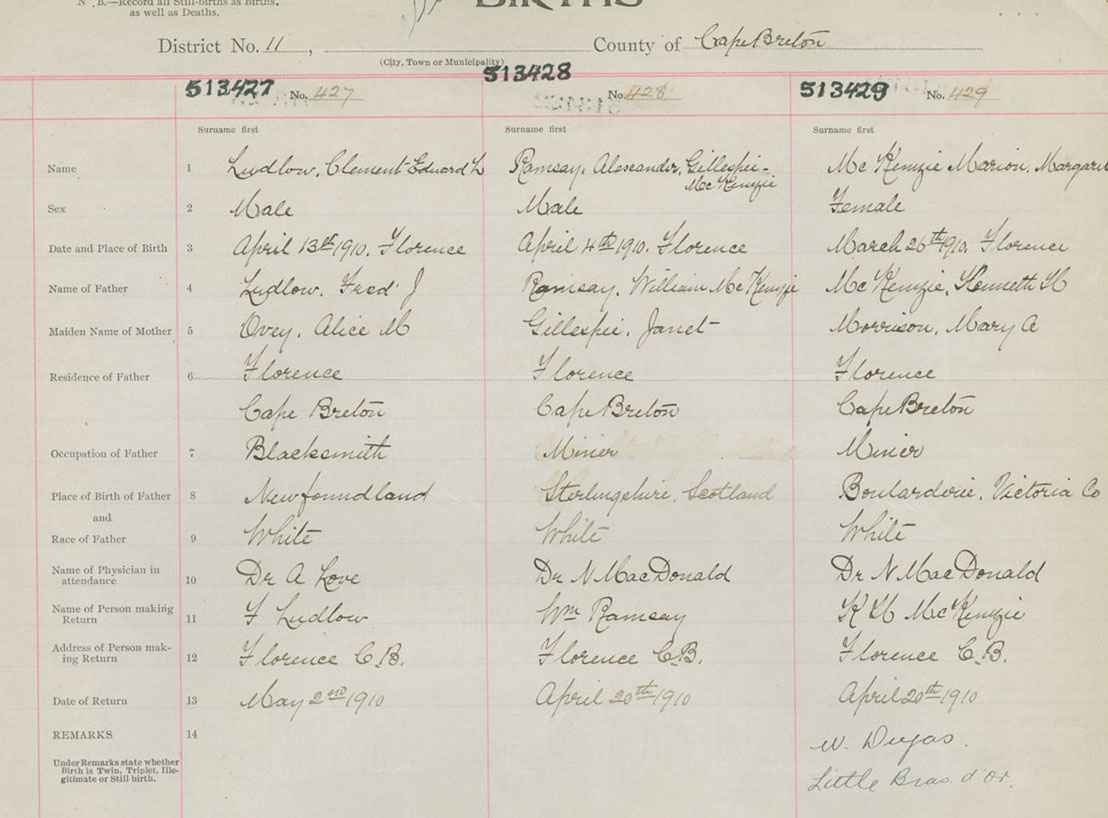 N. B.—Record all Still-births as Births,
as well as Deaths.
BIRTHS
District No. 11, County of Cape Breton
(City, Town or Municipality)
513427 No. 427 513428 No. 428 513429 No. 429
Surname first Surname first Surname first
Name 1 Ludlow, Clement Edward L Ramsay, Alexander, Gillespie- Mc Kenzie Marion, Margaret
Mc Kenzie
Sex 2 Male Male Female
Date and Place of Birth 3 April 13th 1910. Florence April 4th 1910. Florence March 26th 1910. Florence
Name of Father 4 Ludlow, Fred J Ramsay, William Mc Kenzie Mc Kenzie, Kenneth H
Maiden Name of Mother 5 Ovey, Alice M Gillespie, Janet Morrison, Mary A
Residence of Father 6 Florence Florence Florence
Cape Breton Cape Breton Cape Breton
Occupation of Father 7 Blacksmith Miner Miner
Place of Birth of Father 8 Newfoundland Sterlingshire, Scotland Boularderie, Victoria Co
and
Race of Father 9 White White White
Name of Physician in
attendance 10 Dr A Love Dr N MacDonald Dr N MacDonald
Name of Person making
Return 11 F Ludlow Wm Ramsay K H McKenzie
Address of Person mak-
ing Return 12 Florence C.B. Florence C.B. Florence C.B.
Date of Return 13 May 2nd 1910 April 20th 1910 April 20th 1910
REMARKS 14
W. Dugas.
Under Remarks state whether
Birth is Twin, Triplet, Ille-
gitimate or Still birth.
Little Bras d'Or.